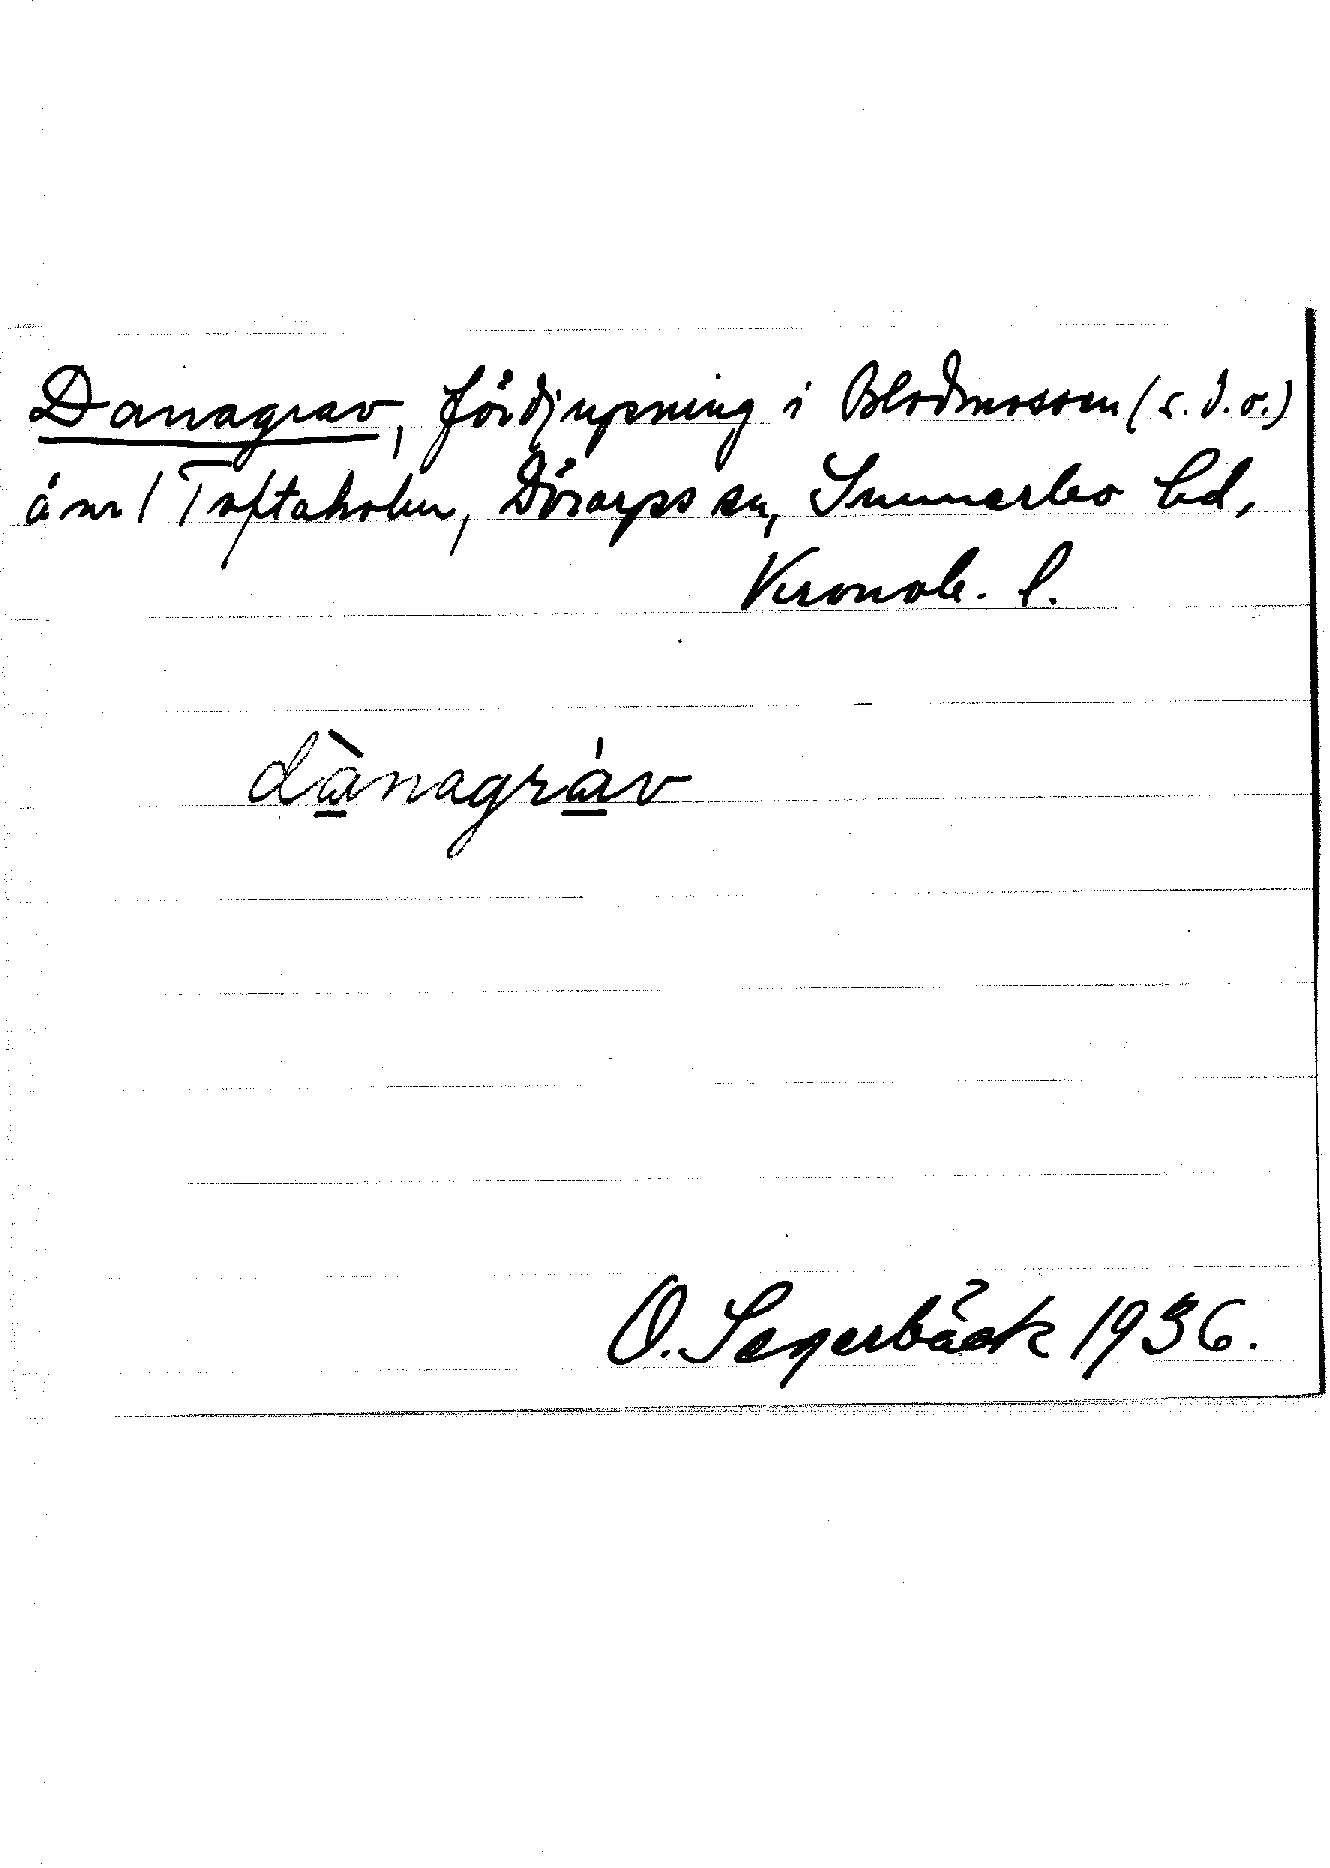 Danagrav, fördjupning i Blodmossen (s. d. o.)
å nr 1 Toftaholm, Dörarps sn, Sunnerbo hd,
Kronob. l.
dànagráv
O. Segerbäck 1936.